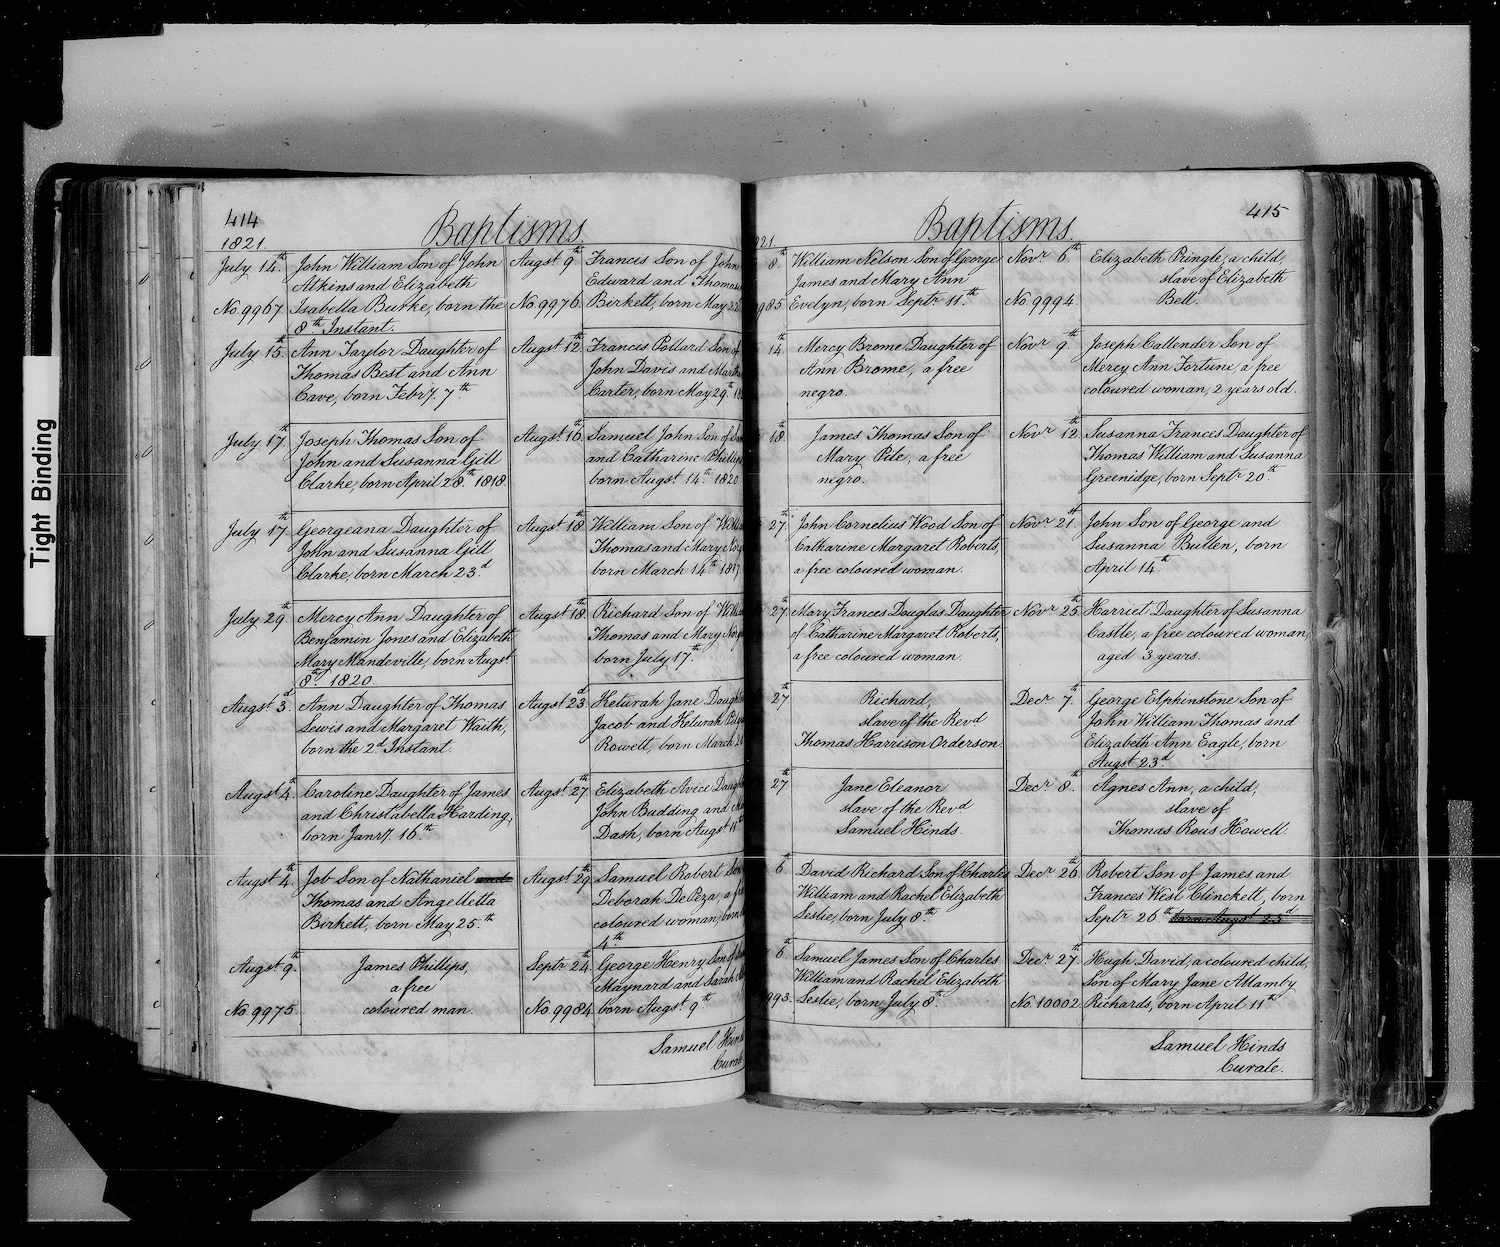 Tight Binding
414
Baptisms
1821
July 14th
No. 9967
John William Son of John
Atkins and Elizabeth
Isabella Burke, born the
8th Instant.
July 15th
Ann Taylor Daughter of
Thomas Best and Ann
Cave, born Febry. 7th
July 17th
Joseph Thomas Son of
John and Susanna Gill
Clarke, born April 28th 1818
July 17th
Georgeana Daughter of
John and Susanna Gill
Clarke, born March 23d
July 29th
Mercy Ann Daughter of
Benjamin Jones and Elizabeth
Mary Mandeville, born Augst
8th 1820.
Augst 3d
Ann Daughter of Thomas
Lewis and Margaret Waith,
born the 2d Instant.
Augst 4th
Caroline Daughter of James
and Christabella Harding,
born Janry. 16th
Augst 4th
Job Son of Nathaniel and
Thomas and Angelletta
Birkett, born May 25th
Augst 9th
No. 9975
James Phillips,
a free
coloured man.
Augst 9th
No. 9976
Francis Son of John
Edward and Thomas
Birkett, born May 22
Augst 12th
Francis Pollard Son of
John Davis and
Carter, born May 29th
Augst 16th
Samuel John Son of
and Catharine
born Augst 14th 1820
Augst 18th
William Son of
Thomas and Mary
born March 14th
Augst 18th
Richard Son of
Thomas and Mary
born July 17th
Augst 23d
Keturah Jane
Jacob and Keturah
Rowett, born March
Augst 27th
Elizabeth Avice
John Budding and
Dash, born Augst 11th
Augst 29th
Samuel Robert
Deborah De Peza, a
coloured woman,
4th
Septr 24th
No. 9984
George Henry, Son of
Maynard and Sarah
born Augst 9th
Samuel
Curate
415
Baptisms
21
8th
985
William Nelson Son of George
James and Mary Ann
Evelyn, born Septr 11th
14th
Mercy Brome Daughter of
Ann Brome, a free
negro.
18th
James Thomas Son of
Mary Pile, a free
negro.
27th
John Cornelius Wood Son of
Catharine Margaret Roberts,
a free coloured woman.
27th
Mary Frances Douglas Daughter
of Catharine Margaret Roberts,
a free coloured woman.
27th
Richard,
slave of the Revd
Thomas Harrison Orderson.
27th
Jane Eleanor
slave of the Revd
Samuel Hinds.
6th
David Richard Son of Charles
William and Rachel Elizabeth
Leslie, born July 8th
6th
993
Samuel James Son of Charles
William and Rachel Elizabeth
Leslie, born July 8th
Novr 6th
No. 9994
Elizabeth Pringle, a child,
slave of Elizabeth
Bell.
Novr 9th
Joseph Callender Son of
Mercy Ann Fortune, a free
coloured woman, 2 years old.
Novr 12th
Susanna Francis Daughter of
Thomas William and Susanna
Greenidge, born Septr 20th
Novr 21st
John Son of George and
Susanna Bullen, born
April 14th
Novr 25th
Harriet Daughter of Susanna
Castle, a free coloured woman,
aged 3 years.
Decr 7th
George Elphinstone Son of
John William Thomas and
Elizabeth Ann Eagle, born
Augst 23d
Decr 8th
Agnes Ann, a child,
slave of
Thomas Rous Howell.
Decr 26th
Robert Son of James and
Frances West Clinckett, born
Septr 26th born Augst 23d
Decr 27th
No. 10002
Hugh David, a coloured child,
Son of Mary Jane Allamby
Richards, born April 11th
Samuel Hinds
Curate.